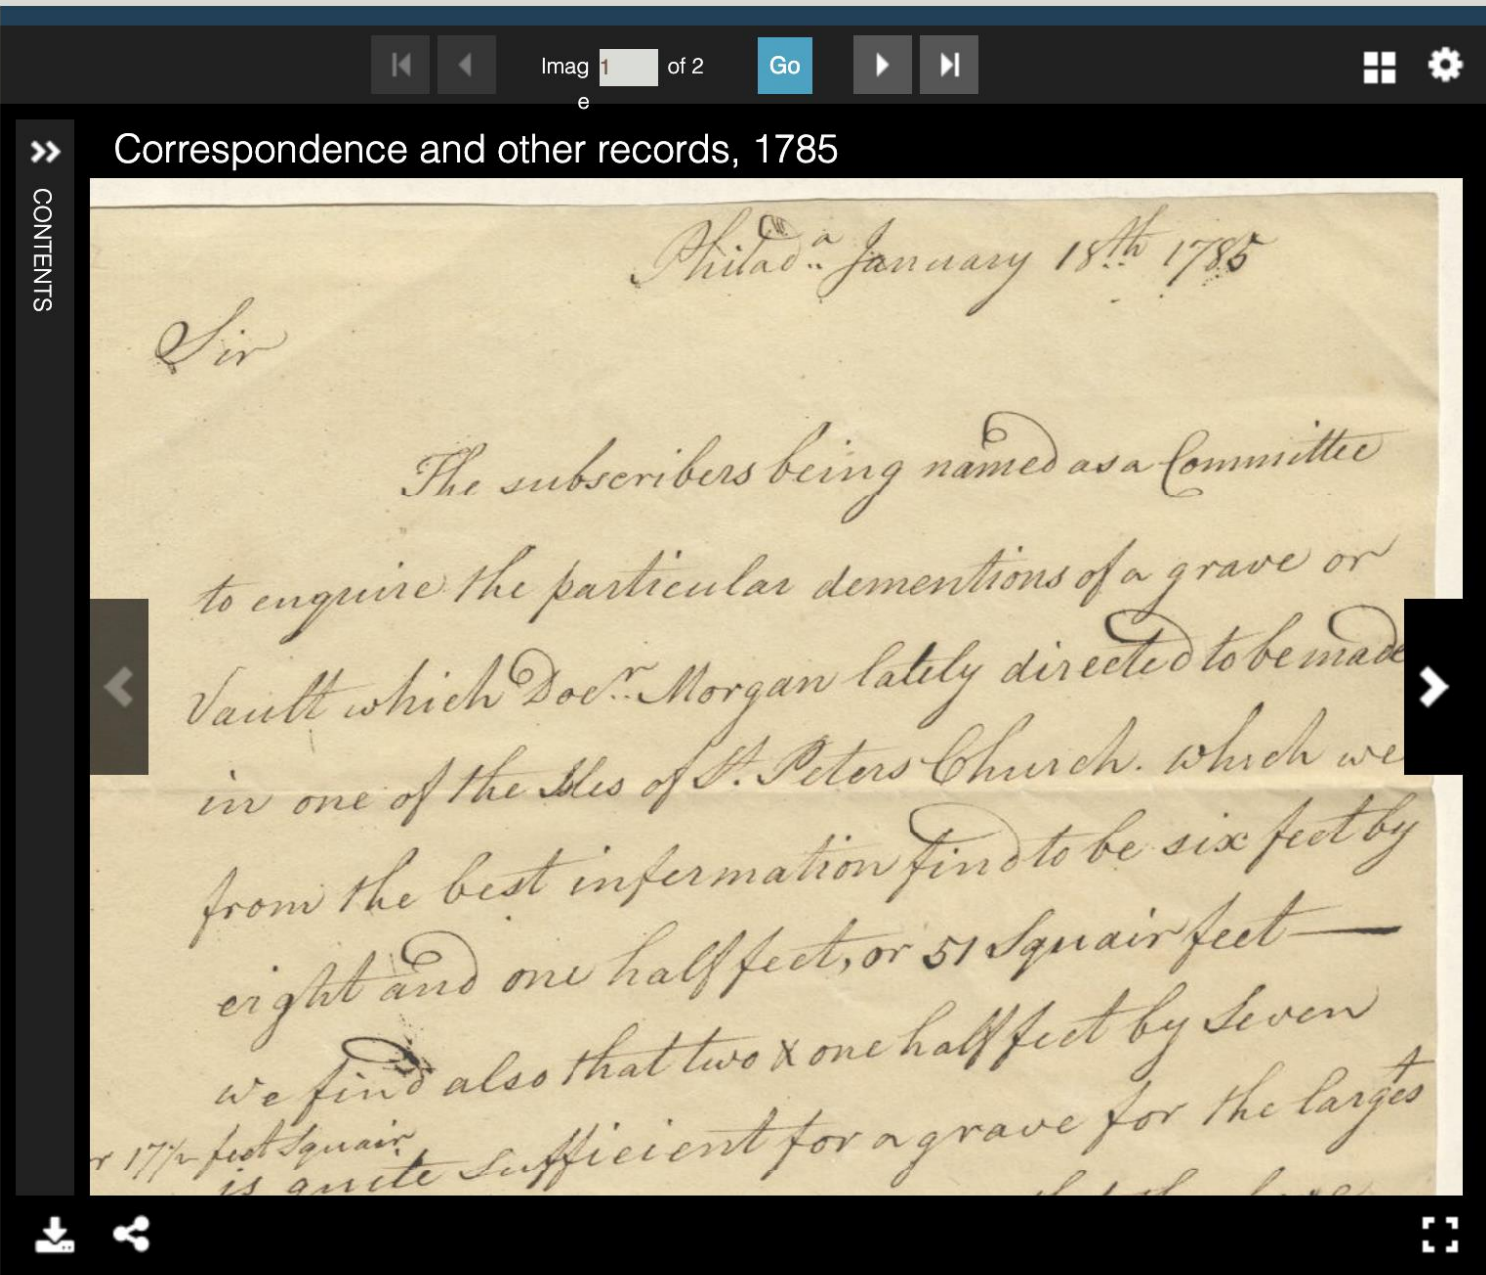 Image 1 of 2 Go
Correspondence and other records, 1785
CONTENTS
Philad.a January 18th 1785
Sir
The subscribers being named as a Committee
to enquire the particular dementions of a grave or
Vault which Docr. Morgan lately directed to be made
in one of the Isles of St. Peters Church. which we
from the best information find to be six feet by
eight and one half feet, or 51 Squair feet —
we find also that two & one half feet by Seven
r 17½ feet Squair
is quite sufficient for a grave for the largest